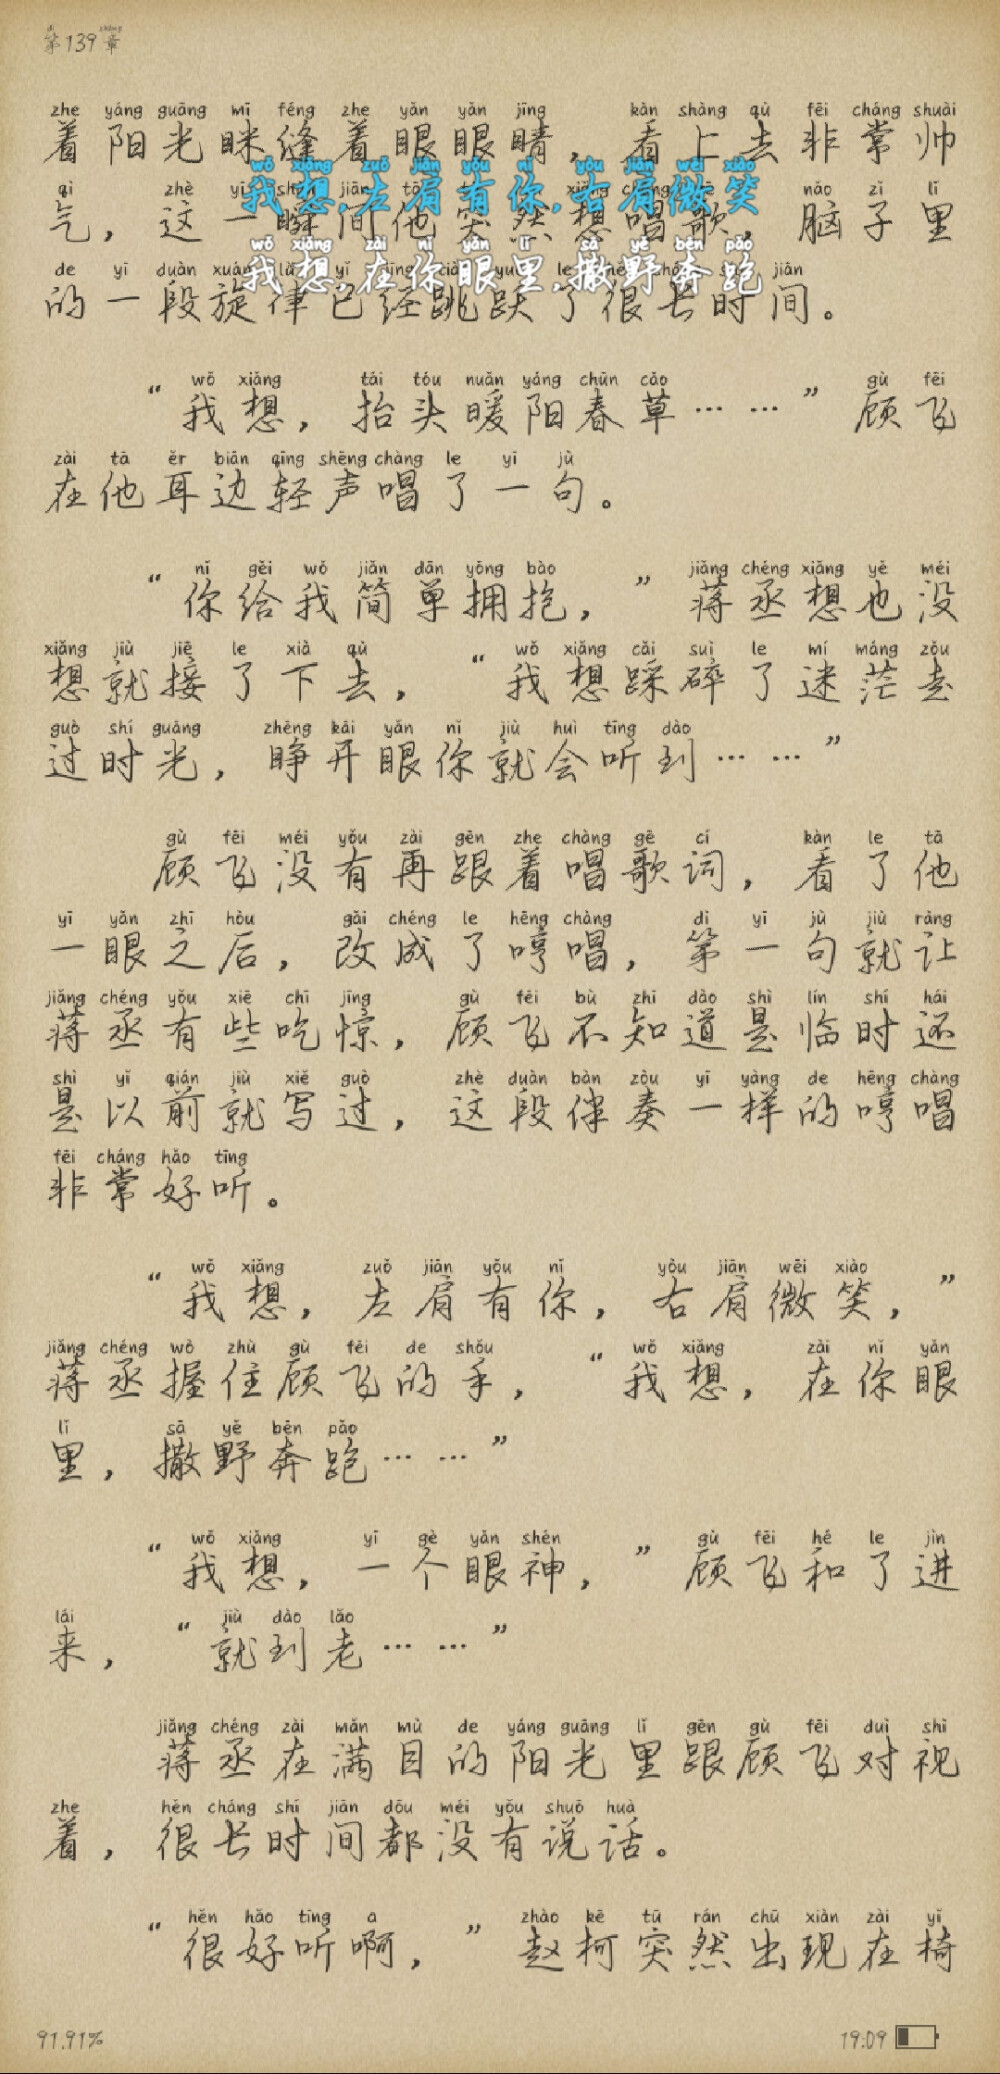 第139章
着阳光眯缝着眼眼睛，看上去非常帅
我想,左肩有你,右肩微笑
气，这一瞬间他突然想唱歌，脑子里
我想,在你眼里,撒野奔跑
的一段旋律已经跳跃了很长时间。
“我想，抬头暖阳春草……”顾飞
在他耳边轻声唱了一句。
“你给我简单拥抱，”蒋丞想也没
想就接了下去，“我想踩碎了迷茫走
过时光，睁开眼你就会听到……”
顾飞没有再跟着唱歌词，看了他
一眼之后，改成了哼唱，第一句就让
蒋丞有些吃惊，顾飞不知道是临时还
是以前就写过，这段伴奏一样的哼唱
非常好听。
“我想，左肩有你，右肩微笑，”
蒋丞握住顾飞的手，“我想，在你眼
里，撒野奔跑……”
“我想，一个眼神，”顾飞和了进
来，“就到老……”
蒋丞在满目的阳光里跟顾飞对视
着，很长时间都没有说话。
“很好听啊，”赵柯突然出现在椅
91.91% 19:09